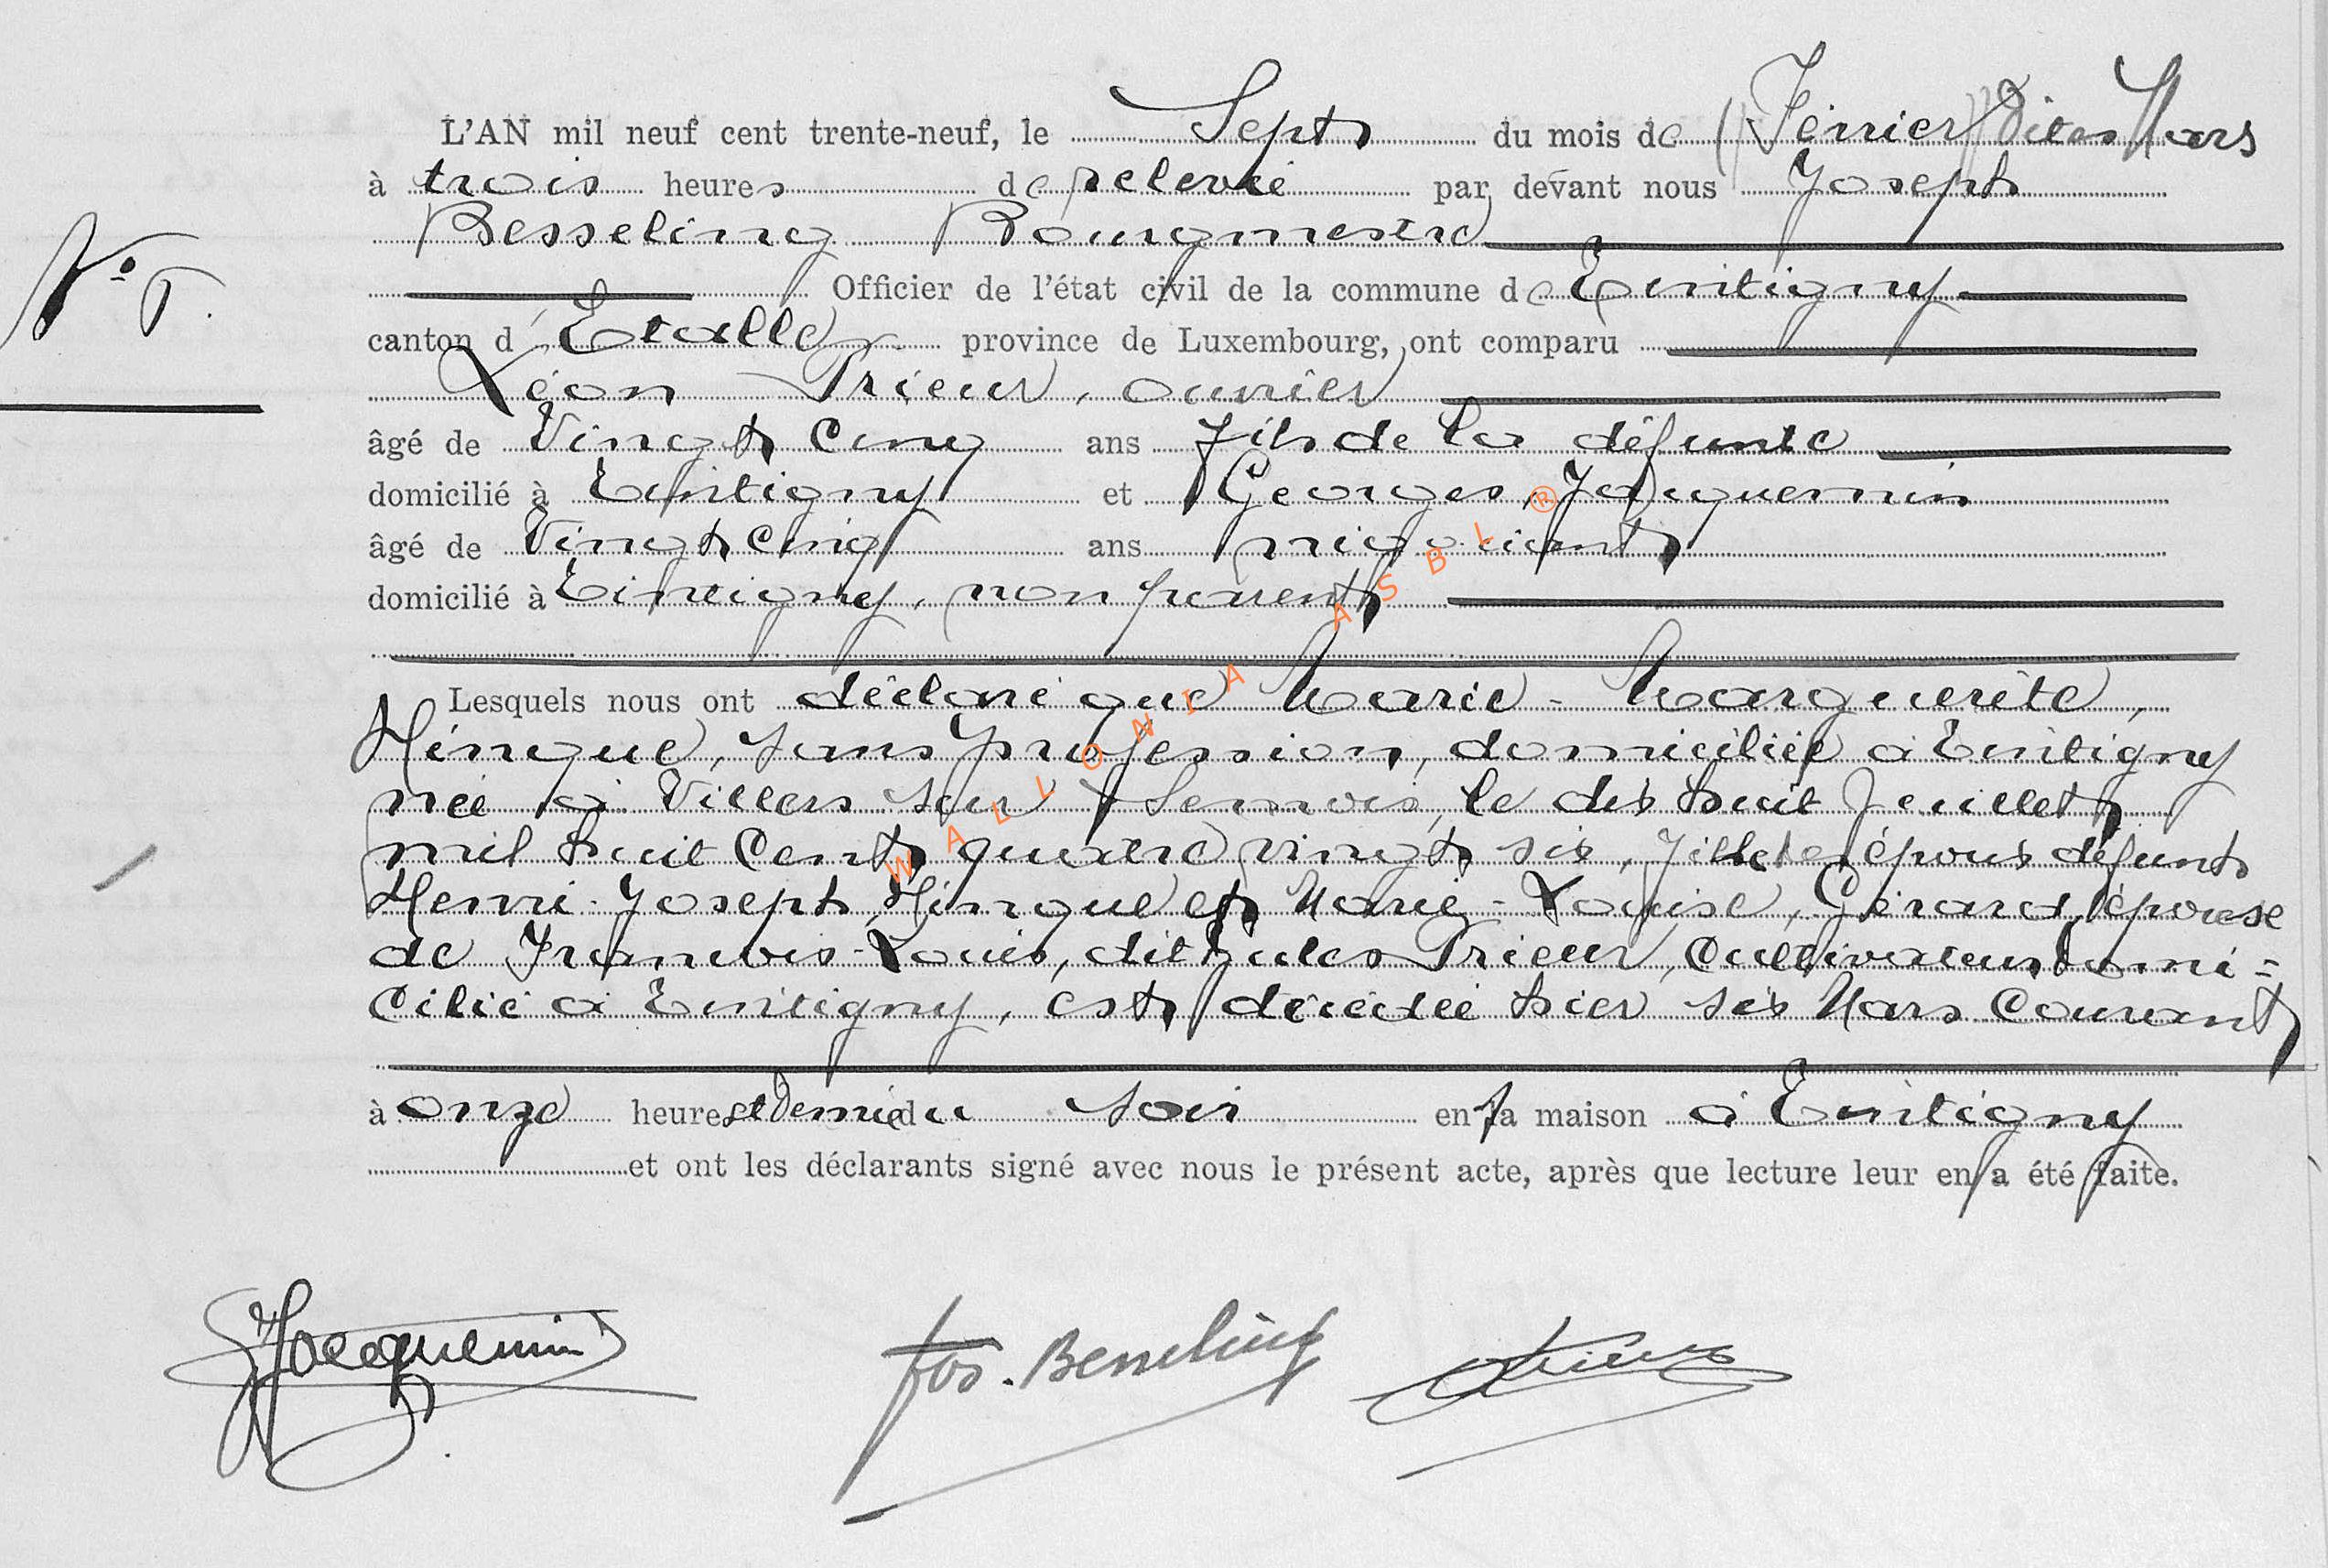 L'AN mil neuf cent trente-neuf, le Sept du mois de (Février) Dites Mars
à trois heures de relevée par devant nous Joseph
Besseling Bourgmestre
N° 5.
Officier de l'état civil de la commune de Tintigny
canton d'Etalle province de Luxembourg, ont comparu
Léon Prieur, ouvrier
âgé de Vingt cinq ans fils de la défunte
domicilié à Tintigny et Georges Jacquemin
âgé de Vingt cinq ans négociant
domicilié à Tintigny, non parent
Lesquels nous ont déclaré que Marie-Marguerite,
Hinque, sans profession, domiciliée à Tintigny
née à Villers sur Semois, le dix huit Juillet
mil huit cent quatre vingt six, fille de époux défunts
Henri-Joseph Hinque et Marie-Louise, Gérard, épouse
de François-Louis, dit Jules Prieur, cultivateur domi=
cilié à Tintigny, est décédée hier six Mars courant
à onze heures et demie du soir en sa maison à Tintigny
et ont les déclarants signé avec nous le présent acte, après que lecture leur en a été faite.
GJacquemin Jos. Besseling Prieur
WALLONIA ASBL ®